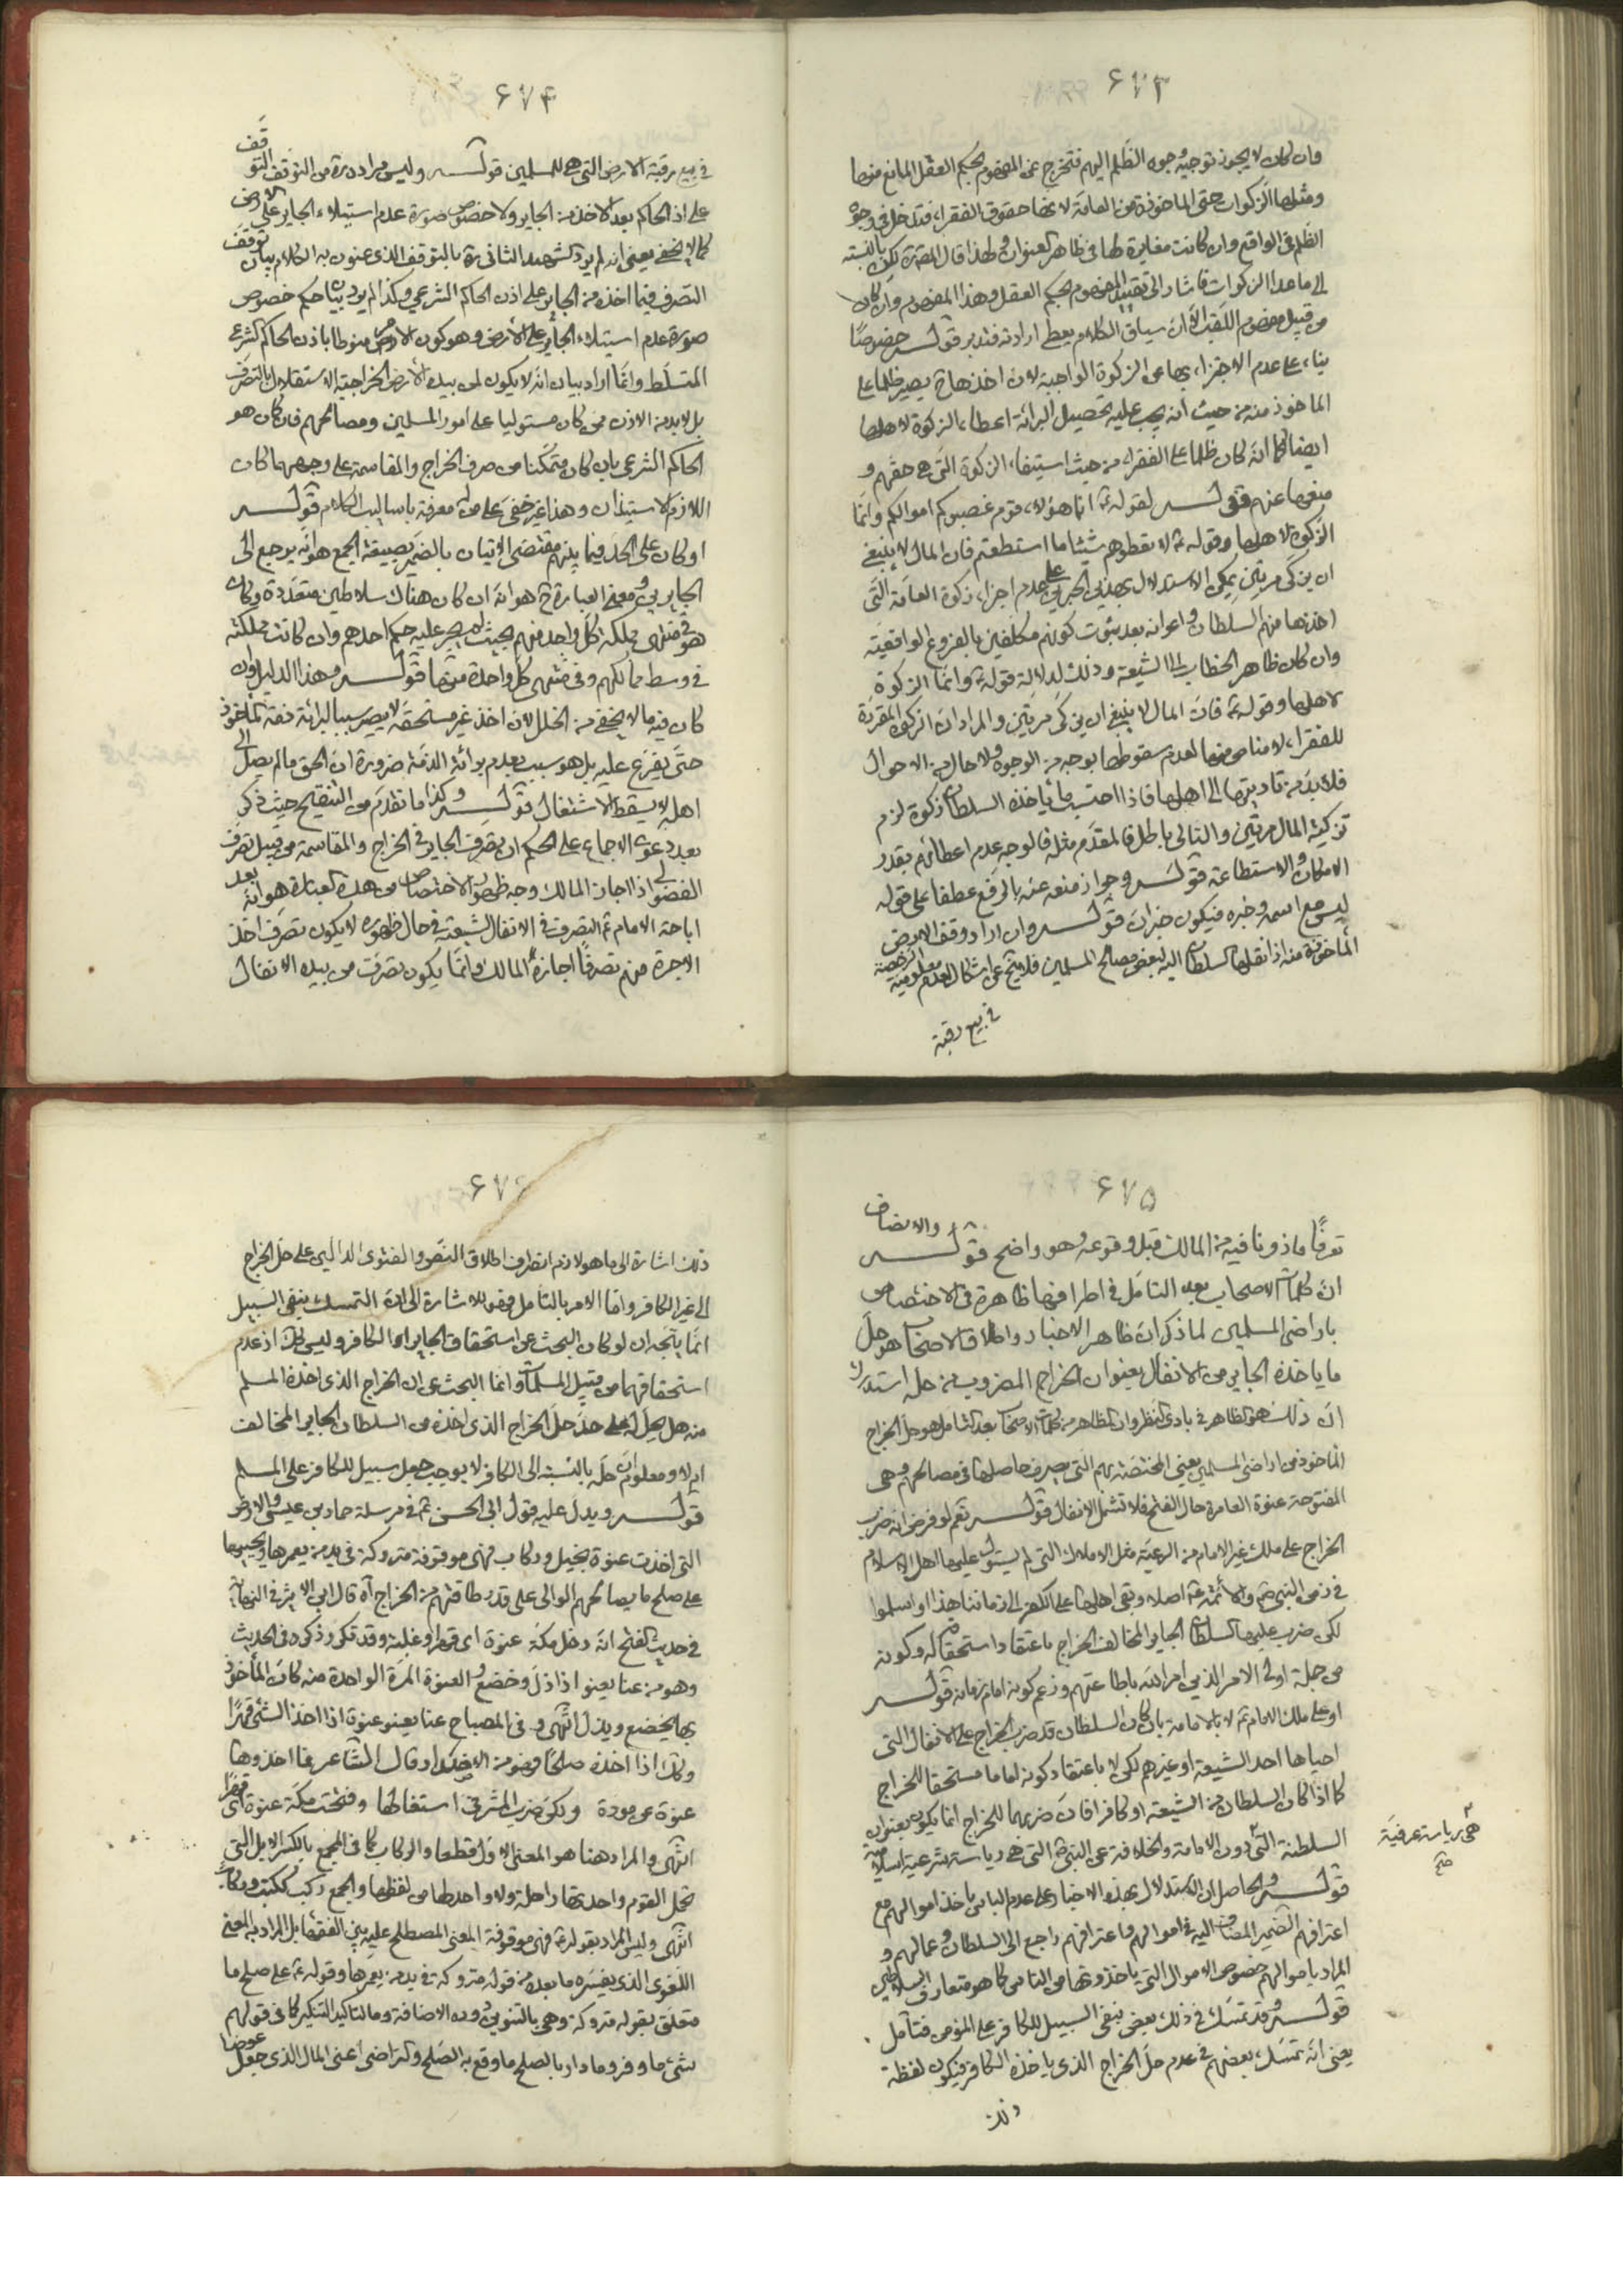 ۶۷۳
وان كان لا يجوز توجيه وجوه الظلم اليهم فتخرج عن المفهوم بحكم العقل المانع منها
ومثلها الزكوات حتى الماخوذة من العامة لانها حقوق الفقراء فتدخل في وجوه
الظلم في الواقع وان كانت مغايرة لها في ظاهر العنوان ولهذا قال المص ره لكن بالنسبة
الى ما عدا الزكوات فاشار الى تقييد المفهوم بحكم العقل وهذا المفهوم وان كان
من قبيل مفهوم اللقب الا ان سياق الكلام يعطى ارادته فتدبر قولـــه خصوصًا
بناء على عدم الاجتزاء بها عن الزكوة الواجبة لان اخذها ح يصير ظلما على
الماخوذ منه من حيث انه يجب عليه تحصيل البرائة اعطاء الزكوة لاهلها
ايضا كما انه كان ظلما على الفقراء من حيث استيفاء الزكوة التي هي حقهم و
منعها عنهم قولـــه لقوله ع انما هؤلاء قوم غصبوكم اموالكم وانما
الزكوة لاهلها وقوله ع لا تعطوهم شيئا ما استطعتم فان المال لا ينبغي
ان يزكى مرتين يمكن الاستدلال بهذين الخبرين على عدم اجزاء زكوة العامة التي
اخذها منهم السلطان واعوانه بعد ثبوت كونهم مكلفين بالفروع الواقعية
وان كان ظاهر الخطاب الى الشيعة وذلك لدلالة قوله ع وانما الزكوة
لاهلها وقوله ع فان المال لا ينبغي ان يزكى مرتين والمراد ان الزكوة المقررة
للفقراء لا مناص منها لعدم سقوطها بوجه من الوجوه ولا حال من الاحوال
فلا بد من تاديتها الى اهلها فاذا احتسب ما ياخذه السلطان زكوة لزم
تزكية المال مرتين والتالي باطل فالمقدم مثله فالوجه عدم اعطائهم بقدر
الامكان والاستطاعة قولـــه وجواز منعه عنه بالرفع عطفا على قوله
ليس مع اسمه وخبره فيكون خبر ان قولـــه وان اراد وقف الارض
المأخوذة منه اذا نقلها السلطان اليه لبعض مصالح المسلمين فلا يخ عن اشكال لعدم معلومية الرخصة
في بيع رقبة
۶۷۴
في بيع رقبة الارض التي هي للمسلمين قولـــه وليس مراده ره من التوقف التوقف
على اذن الحاكم بعد الاخذ من الجاير ولا خصوص صورة عدم استيلاء الجاير على الارض
كما لا يخفى يعني انه لم يرد الشهيد الثاني ره بالتوقف الذي عنون به الكلام بيان توقف
التصرف فيما اخذ من الجاير على اذن الحاكم الشرعي وكذا لم يرد بيان حكم خصوص
صورة عدم استيلاء الجاير على الارض وهو كون الارض منوطا باذن الحاكم الشرعي
المتسلط وانما اراد بيان انه لا يكون لمن بيده الارض الخراجية الاستقلال بالتصرف
بل لا بد من الاذن ممن كان مستوليا على امور المسلمين ومصالحهم فان كان هو
الحاكم الشرعي بان كان متمكنا من صرف الخراج والمقاسمة على وجههما كان
اللازم الاستيذان وهذا غير خفي على من له معرفة باساليب الكلام قولـــه
او كان على الحد فيما بينهم مقتضى الاتيان بالضمير بصيغة الجمع هو انه يرجع الى
الجايرين ومعنى العبارة ح هو انه ان كان هناك سلاطين متعددة وكان
هو في منتهى مملكة كل واحد منهم بحيث لم يجر عليه حكم احدهم وان كانت مملكته
في وسط ممالكهم وفي منتهى كل واحدة منها قولـــه وهذا الدليل وان
كان فيه ما لا يخفى من الخلل لان اخذ غير مستحقه لا يصير سببا لبرائة ذمة الماخوذ
حتى يفرع عليه بل هو سبب بعدم برائة الذمة ضرورة ان الحق ما لم يصل الى
اهله لا يسقط الاشتغال قولـــه وكذا ما تقدم من التنقيح حيث ذكر
بعد دعوى الاجماع على الحكم ان تصرف الجاير في الخراج والمقاسمة من قبيل تصرف
الفضولي اذا اجاز المالك وجه ظهور الاختصاص من هذه العبارة هو انه بعد
اباحة الامام ع التصرف في الانفال للشيعة في حال ظهوره لا يكون تصرف اخذ
الاجرة منهم تصرفًا اجازه المالك وانما يكون تصرف من بيده الانفال
۶۷۵
تصرفًا ماذونا فيه من المالك قبل وقوعه وهو واضح قولـــه والانصاف
ان كلمات الاصحاب بعد التامل في اطرافها ظاهرة في الاختصاص
باراضي المسلمين لما ذكر ان ظاهر الاخبار واطلاق الاصحاب هو حل
ما ياخذه الجاير من الانفال بعنوان الخراج المضروب من حله استدرك
ان ذلك هو الظاهر في بادى النظر وان الظاهر من كلمات الاصحاب بعد التامل هو حل الخراج
الماخوذ من اراضي المسلمين يعني المختصة بهم التي يصرف حاصلها في مصالحهم وهي
المفتوحة عنوة العامرة حال الفتح فلا تشمل الانفال قولـــه نعم لو فرض انه ضرب
الخراج على ملك غير الامام من الرعية مثل الاملاك التي لم يستول عليها اهل الاسلام
في زمن النبي ص والائمة ع اصلا وبقى اهلها على الكفر الى زماننا هذا او اسلموا
لكن ضرب عليها السلطان الجاير المخالف الخراج باعتقاد استحقاقه له وكونه
من جملة اولى الامر الذين امر الله باطاعتهم وزعم كونه امام زمانه قولـــه
او على ملك الامام ع لا بالامامة بان كان السلطان قد ضرب الخراج على الانفال التي
احياها احد الشيعة او غيرهم لكن لا باعتقاد كونه اماما مستحقا للخراج
كما اذا كان السلطان من الشيعة او كافرا فان ضربهما للخراج انما يكون بعنوان
السلطنة التي دون الامامة والخلافة عن النبي ص التي هي رياسة شرعية اسلامية
هي رياسة عرفية
صح
قولـــه والحاصل ان الاستدلال بهذه الاخبار على عدم الباس باخذ اموالهم مع
اعترافهم الضمير المضاف اليه في اموالهم واعترافهم راجع الى السلطان وعمالهم و
المراد باموالهم خصوص الاموال التي ياخذونها من الناس كما هو متعارف السلاطين
قولـــه وقد تمسك في ذلك بعض بنفى السبيل للكافر على المؤمن فتأمل
يعني انه تمسك بعضهم في عدم حل الخراج الذي ياخذه الكافر فيكون لفظة
ذلك
۶۷۶
ذلك اشارة الى ما هو لازم انصراف اطلاق النص والفتوى الدالين على حل الخراج
الى غير الكافر واما الامر بالتامل فهو للاشارة الى ان التمسك بنفى السبيل
انما يتجه ان لو كان البحث عن استحقاق الجاير او الكافر وليس كك اذ عدم
استحقاقهما من قبيل المسلمات وانما البحث عن ان الخراج الذي اخذه المسلم
منه هل يحل له على حد حل الخراج الذي اخذه من السلطان الجاير المخالف
ام لا ومعلوم ان حله بالنسبة الى الكافر لا يوجب جعل سبيل للكافر على المسلم
قولـــه ويدل عليه قول ابى الحسن ع في مرسلة حماد بن عيسى والارض
التي اخذت عنوة بخيل وركاب فهى موقوفة متروكة في يد من يعمرها ويحييها
على صلح ما يصالحهم الوالى على قدر طاقتهم من الخراج آه قال ابن الاثير في النهاية
في حديث الفتح انه دخل مكة عنوة اى قهرا وغلبة وقد تكرر ذكره في الحديث
وهو من عنا يعنو اذا ذل وخضع والعنوة المرة الواحدة منه كان المأخوذ
بها يخضع ويذل انتهى وفي المصباح عنا يعنو عنوة اذا اخذ الشئ قهرًا
وكك اذا اخذه صلحًا فهو من الاضداد وقال الشاعر فما اخذوها
عنوة عن مودة ولكن ضرب المشرفى استقالها وفتحت مكة عنوة اى قهرًا
انتهى والمراد هنا هو المعنى الاول قطعا والركاب كما في المجمع بالكسر الابل التي
تحمل القوم واحدتها راحلة ولا واحد لها من لفظها والجمع ركب ككتب وركائب
انتهى وليس المراد بقوله ع فهى موقوفة المعنى المصطلح عليه بين الفقهاء بل المراد به المعنى
اللغوى الذي يفسره ما بعده من قوله متروكة في يد من يعمرها وقوله ع على صلح ما
متعلق بقوله متروكة وهى بالتنوين دون الاضافة وما لتاكيد التنكير كما في قولهم
شئ ما وفرو ما دار بالصلح ما وقع به الصلح والتراضى اعنى المال الذي جعل عوضا